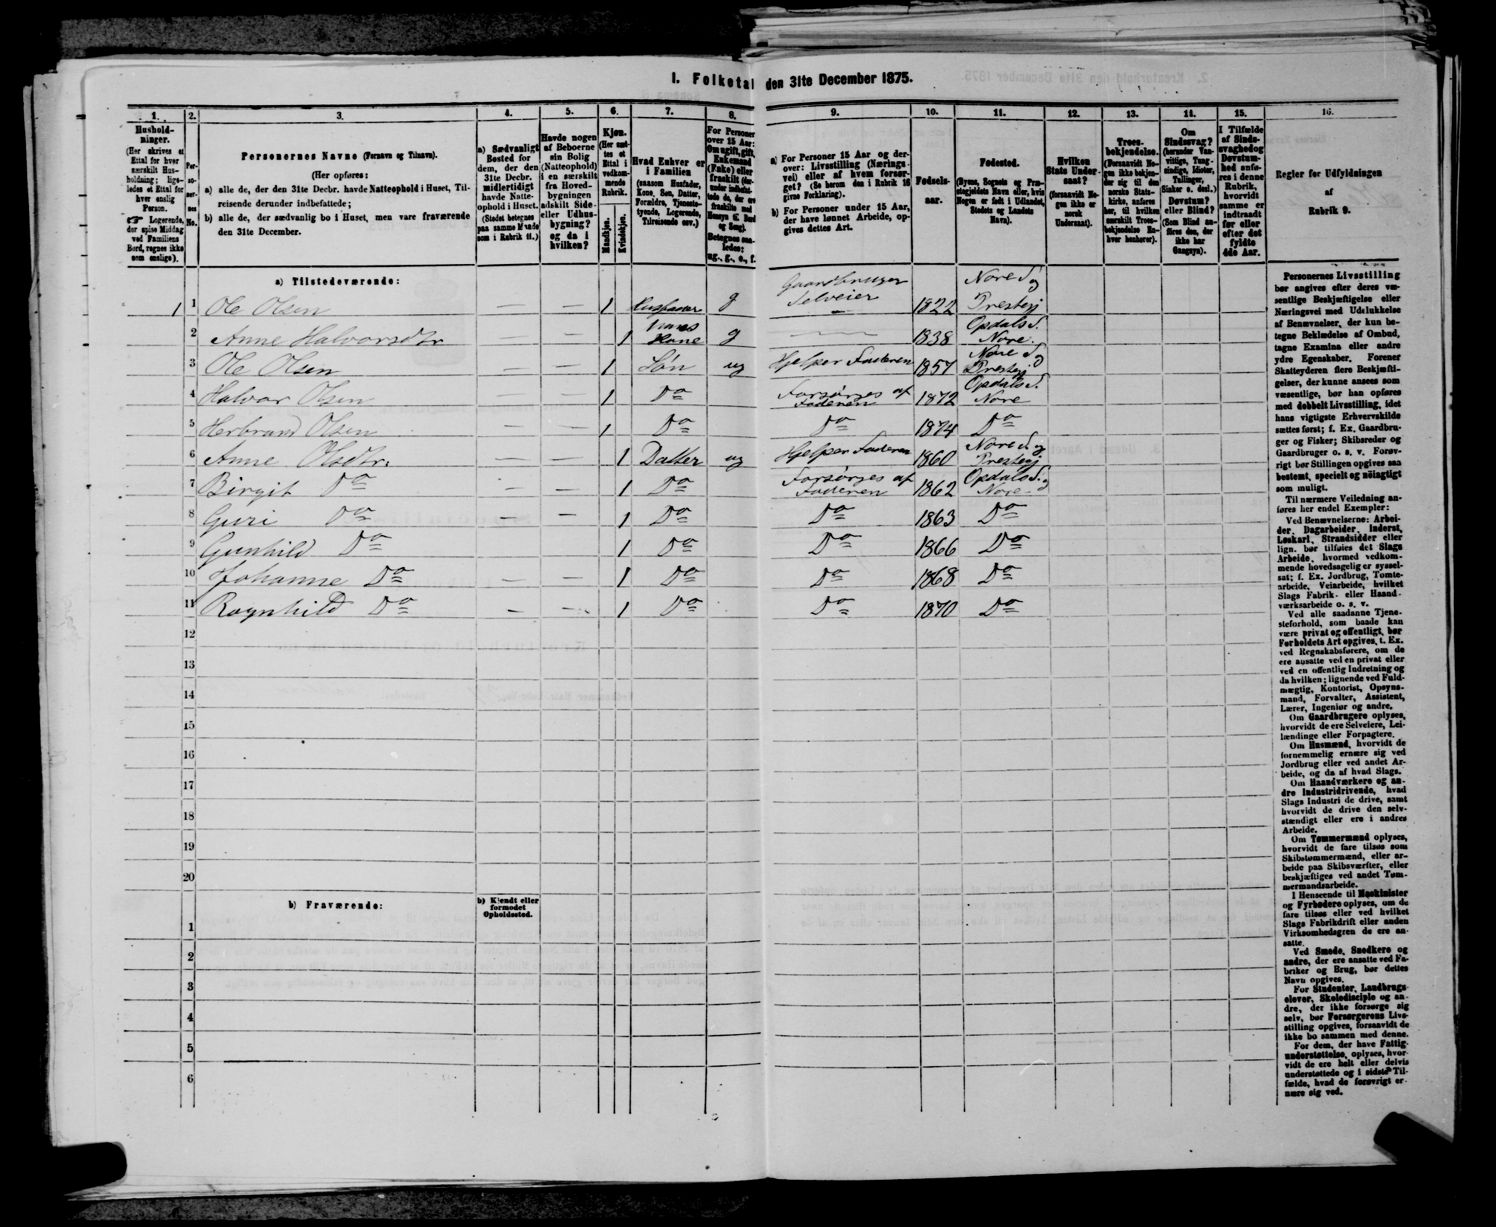 I. Folketal den 31te December 1875.
1.
Husholdninger.
(Her skrives et
Ettal for hver
særskilt Husholdning; ligeledes et Ettal for
hver enslig
Person.
☞ Logerende,
der spise Middag
ved Familiens
Bord, regnes ikke
som enslige).
2.
Personernes
No.
3.
Personernes Navne (Fornavn og Tilnavn).
(Her opføres:
a) alle de, der den 31te Decbr. havde Natteophold i Huset, Tilreisende derunder indbefattede;
b) alle de, der sædvanlig bo i Huset, men vare fraværende
den 31te December.
4.
a) Sædvanligt
Bosted for
dem, der den
31te Decbr.
midlertidigt
havde Natteophold i Huset.
(Stedet betegnes
paa samme Maade
som i Rubrik 11.)
5.
Havde nogen
af Beboerne
sin Bolig
(Natteophold)
i en særskilt
fra Hovedbygningen
adskilt Side-
eller Udhusbygning?
og da i
hvilken?
6.
Kjøn.
(Her sættes et
Ettal i
vedkommende
Rubrik.
Mandkjøn.
Kvindekjøn.
7.
Hvad Enhver er
i Familien
(saasom Husfader,
Kone, Søn, Datter,
Forældre, Tjenestetyende, Logerende,
Tilreisende osv.)
8.
For Personer
over 15 Aar:
Om ugift, gift,
Enkemand
(Enke) eller
fraskilt
Betegnes saaledes:
ug., g., e., f.
9.
a) For Personer 15 Aar og derover: Livsstilling (Næringsvei) eller af hvem forsørget? (Se herom den i Rubrik 16
givne Forklaring).
b) For Personer under 15 Aar,
der have lønnet Arbeide, opgives dettes Art.
10.
Fødselsaar.
11.
Fødested.
(Byens, Sognets og Præstegjeldets Navn eller, hvis
Nogen er født i Udlandet,
Stedets og Landets
Navn).
12.
Hvilken
Stats Undersaat?
(forsaavidt Nogen ikke er
norsk
Undersaat).
13.
Troesbekjendelse.
(Forsaavidt Nogen ikke bekjender sig til den
norske Statskirke, anføres
her, til hvilken
særskilt Troesbekjendelse Enhver henhører).
14.
Om
Sindssvag?
(herunder Vanvittige, Tungsindige, Idioter,
Tullinger,
Sinker o. desl.)
Døvstum?
eller Blind?
(Som Blind anføres den, der
ikke har
Gangsyn).
15.
I Tilfælde
af Sindssvaghed og
Døvstumhed anføres i denne
Rubrik,
hvorvidt
samme er
indtraadt
før eller
efter det
fyldte
4de Aar.
16.
Regler for Udfyldningen
af
Rubrik 9.
a) Tilstedeværende:
1 1 Ole Olsen — — 1 Husfader g Gaardbruger Selveier 1822 Nore S. og Prestegj
2 Anne Halvorsdtr — — 1 hans Kone g — 1838 Opdals S. Nore.
3 Ole Olsen — — 1 Søn ug Hjelper Faderen 1857 Nore S. og Prestegj
4 Halvor Olsen — — 1 Do Forsørges af Faderen 1872 Opdals S. Nore
5 Herbrand Olsen 1 Do Do 1874 Do
6 Anne Olsdtr. — — 1 Datter ug Hjelper Faderen 1860 Nore S. og Prestegj
7 Birgit Do — — 1 Do Forsørges af Faderen 1862 Opdals S. Nore
8 Guri Do — — 1 Do Do 1863 Do
9 Gunhild Do 1 Do Do 1866 Do
10 Johanne Do — — 1 Do Do 1868 Do
11 Ragnhild Do — — 1 Do Do 1870 Do
12
13
14
15
16
17
18
19
20
b) Fraværende:
b) Kjendt eller
formodet
Opholdssted.
1
2
3
4
5
6
Personernes Livsstilling
bør angives efter deres væsentlige Beskjæftigelse eller
Næringsvei med Udelukkelse
af Benævnelser, der kun betegne Beklædelse af Ombud,
tagne Examina eller andre
ydre Egenskaber. Forener
Skatteyderen flere Beskjæftigelser, der kunne ansees som
væsentlige, bør han opføres
med dobbelt Livsstilling, idet
hans vigtigste Erhvervskilde
sættes først; f. Ex. Gaardbruger og Fisker; Skibsreder og
Gaardbruger o. s. v. Forøvrigt bør Stillingen opgives saa
bestemt, specielt og nøiagtigt
som muligt.
Til nærmere Veiledning anføres her endel Exempler:
Ved Benævnelserne: Arbeider, Dagarbeider, Inderst,
Løskarl, Strandsidder eller
lign. bør tilføies det Slags
Arbeide, hvormed vedkommende hovedsagelig er sysselsat; f. Ex. Jordbrug, Tomtearbeide, Veiarbeide, hvilket
Slags Fabrik- eller Haandværksarbeide o. s. v.
Ved alle saadanne Tjenesteforhold, som baade kan
være privat og offentligt, bør
Forholdets Art opgives, t. Ex.
ved Regnskabsførere, om de
ere ansatte ved en privat eller
ved en offentlig Indretning og
da hvilken; lignende ved Fuldmægtig, Kontorist, Opsynsmand, Forvalter, Assistent,
Lærer, Ingeniør og andre.
Om Gaardbrugere oplyses,
hvorvidt de ere Selveiere, Leilændinge eller Forpagtere.
Om Husmænd, hvorvidt de
fornemmelig ernære sig ved
Jordbrug eller ved andet Arbeide, og da af hvad Slags.
Om Haandværkere og andre Industridrivende, hvad
Slags Industri de drive, samt
hvorvidt de drive den selvstændigt eller ere i andres
Arbeide.
Om Tømmermænd oplyses,
hvorvidt de fare tilsøs som
Skibstømmermænd, eller arbeide paa Skibsværfter, eller
beskjæftiges ved andet Tømmermandsarbeide.
I Henseende til Maskinister
og Fyrbødere oplyses, om de
fare tilsøs eller ved hvilket
Slags Fabrikdrift eller anden
Virksomhedsgren de ere ansatte.
Ved Smede, Snedkere og
andre, der ere ansatte ved Fabriker og Brug, bør dettes
Navn opgives.
For Studenter, Landbrugselever, Skoledisciple og andre, der ikke forsørge sig
selv, bør Forsørgerens Livsstilling opgives, forsaavidt de
ikke bo sammen med denne.
For dem, der have Fattigunderstøttelse, oplyses, hvorvidt de ere helt eller delvis
understøttede og i sidste Tilfælde, hvad de forøvrigt ernære sig ved.